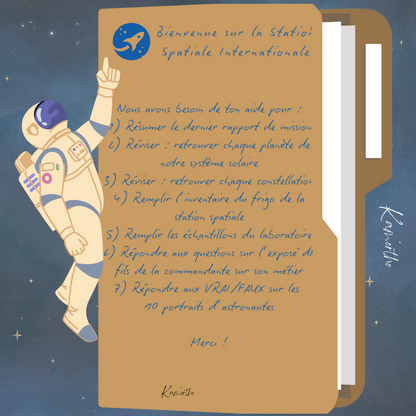 Bienvenue sur la Station
Spatiale Internationale
Nous avons besoin de ton aide pour :
1) Résumer le dernier rapport de mission
2) Réviser : retrouver chaque planète de
notre système solaire
3) Réviser : retrouver chaque constellation
4) Remplir l'inventaire du frigo de la
station spatiale
5) Remplir les échantillons du laboratoire
6) Répondre aux questions sur l'exposé du
fils de la commandante sur son métier
7) Répondre aux VRAI/FAUX sur les
10 portraits d'astronautes
Merci !